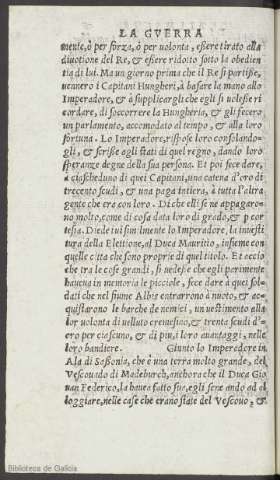 LA GVERRA
mente, ò per forza, ò per uolonta, essere tirato alla
diuotione del Re, & essere ridotto sotto la obedien
tia di lui. Ma un giorno prima che il Re si partisse,
uennero i Capitani Hungheri, à basare la mano allo
Imperadore, & à supplicargli che egli si uolesse ri
cordare, di soccorrere la Hungheria, & gli fecero
un parlamento, accomodato al tempo, & alla loro
fortuna. Lo Imperadore, rispose loro consolando-
gli, & scrisse agli stati di quel regno, dando loro
speranze degne della sua persona. Et poi fece dare,
à ciascheduno di quei Capitani, una catena d'oro di
trecento scudi, & una paga intiera, à tutta l'altra
gente che era con loro. Di che elli se ne appagaro-
no molto, come di cosa data loro di grado, & p cor
tesia. Diede tui simlmente lo Imperadore, la inuesti
tura della Elettione, al Duca Mauritio, insieme con
quelle città che sono proprie di quel titolo. Et accio
che tra le cose grandi, si uedesse che egli parimente
haueua in memoria le picciole, fece dare à quei sol-
dati che nel fiume Albis entrarrono à nuoto, & ac-
quistarono le barche de nemici, un uestimento alla
lor uolonta di uelluto cremesino, & trenta scudi d'o-
ro per ciascuno, & di piu, i loro auantaggi, nelle
loro bandiere. Giunto lo Imperadore in
Ala di Sassonia, che è una terra molto grande, del
Vescouado di Madeburch, anchora che il Duca Gio
uan Federico, la haueа fatto sua, egli sene andò ad al
loggiare, nelle case che erano state del Vescouo, &
Biblioteca de Galicia